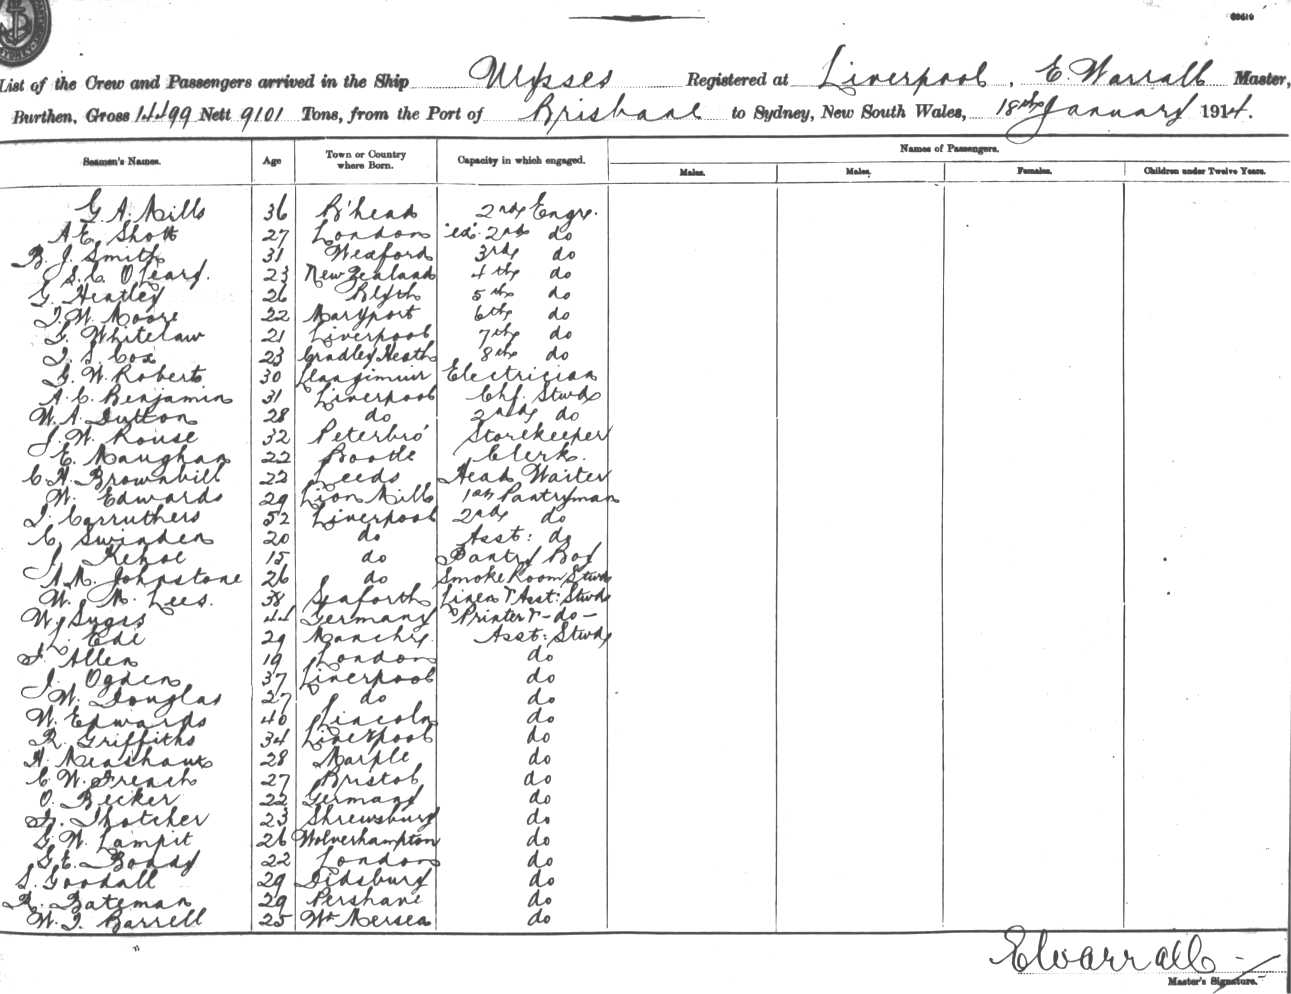 68619
List of the Crew and Passengers arrived in the Ship Ulysses Registered at Liverpool, E. Warrall Master,
Burthen, Gross 14499 Nett 9101 Tons, from the Port of Brisbane to Sydney, New South Wales, 18th January 1914.
Seamen's Names. Age Town or Country where Born. Capacity in which engaged. Names of Passengers.
Males. Males. Females. Children under Twelve Years.
G. A. Mills 36 B'head 2nd Engr.
A E Shott 27 London 2nd do
B. J. Smith 31 Wexford 3rd do
S. C. O'Leary. 23 New Zealand 4th do
G. Heatley 26 Blyth 5th do
J. W. Moore 22 Maryport 6th do
G. Whitelaw 21 Liverpool 7th do
J. S. Cox 23 Cradley Heath 8th do
G. W. Roberts 30 Electrician
A. C. Benjamin 31 Liverpool Chf. Stwd
W. A. Dutton 28 do 2nd do
J. W. Rouse 32 Peterbro' Storekeeper
E. Maughan 22 Bootle Clerk.
C H. Brownbill 22 Leeds Head Waiter
W. Edwards 29 Lion Mills 1st Pantryman
J. Carruthers 52 Liverpool 2nd do
C. Swinden 20 do Asst: do
J. Kehoe 15 do Pantry Boy
A. M. Johnstone 26 do Smoke Room Stwd
W. M. Lees. 38 Seaforth Linen & Asst: Stwd
W. 44 Germany Printer & - do -
L. Ede 29 Asst: Stwd
F. Allen 19 London do
J. Ogden 37 Liverpool do
W. Douglas 27 do do
W. Edwards 40 Lincoln do
R. Griffiths 34 Liverpool do
H. 28 Marple do
C. W. French 27 Bristol do
O. Becker 22 Germany do
Thatcher 23 Shrewsbury do
G. W. Lampit 26 Wolverhampton do
G. E. Boady 22 London do
S. Goodall 29 Didsbury do
R. Bateman 29 Pershane do
W. J. Barrell 25 Wt Mersea do
E Warrall
Master's Signature.